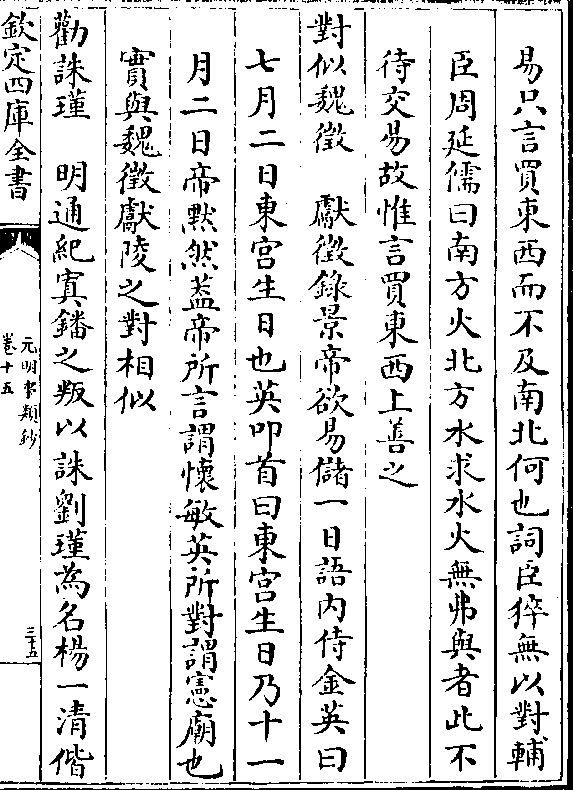 易只言買東西而不及南北何也詞臣猝無以對輔
臣周延儒曰南方火北方水求水火無弗與者此不
待交易故惟言買東西上善之
對似魏徵　獻徵錄景帝欲易儲一日語内侍金英曰
七月二日東宫生日也英叩首曰東宫生日乃十一
月二日帝黙然葢帝所言謂懷敏英所對謂憲廟也
實與魏徵獻陵之對相似
勸誅瑾　明通紀寘鐇之叛以誅劉瑾為名楊一清偕
欽定四庫全書
元明事類鈔
卷十五
三十五